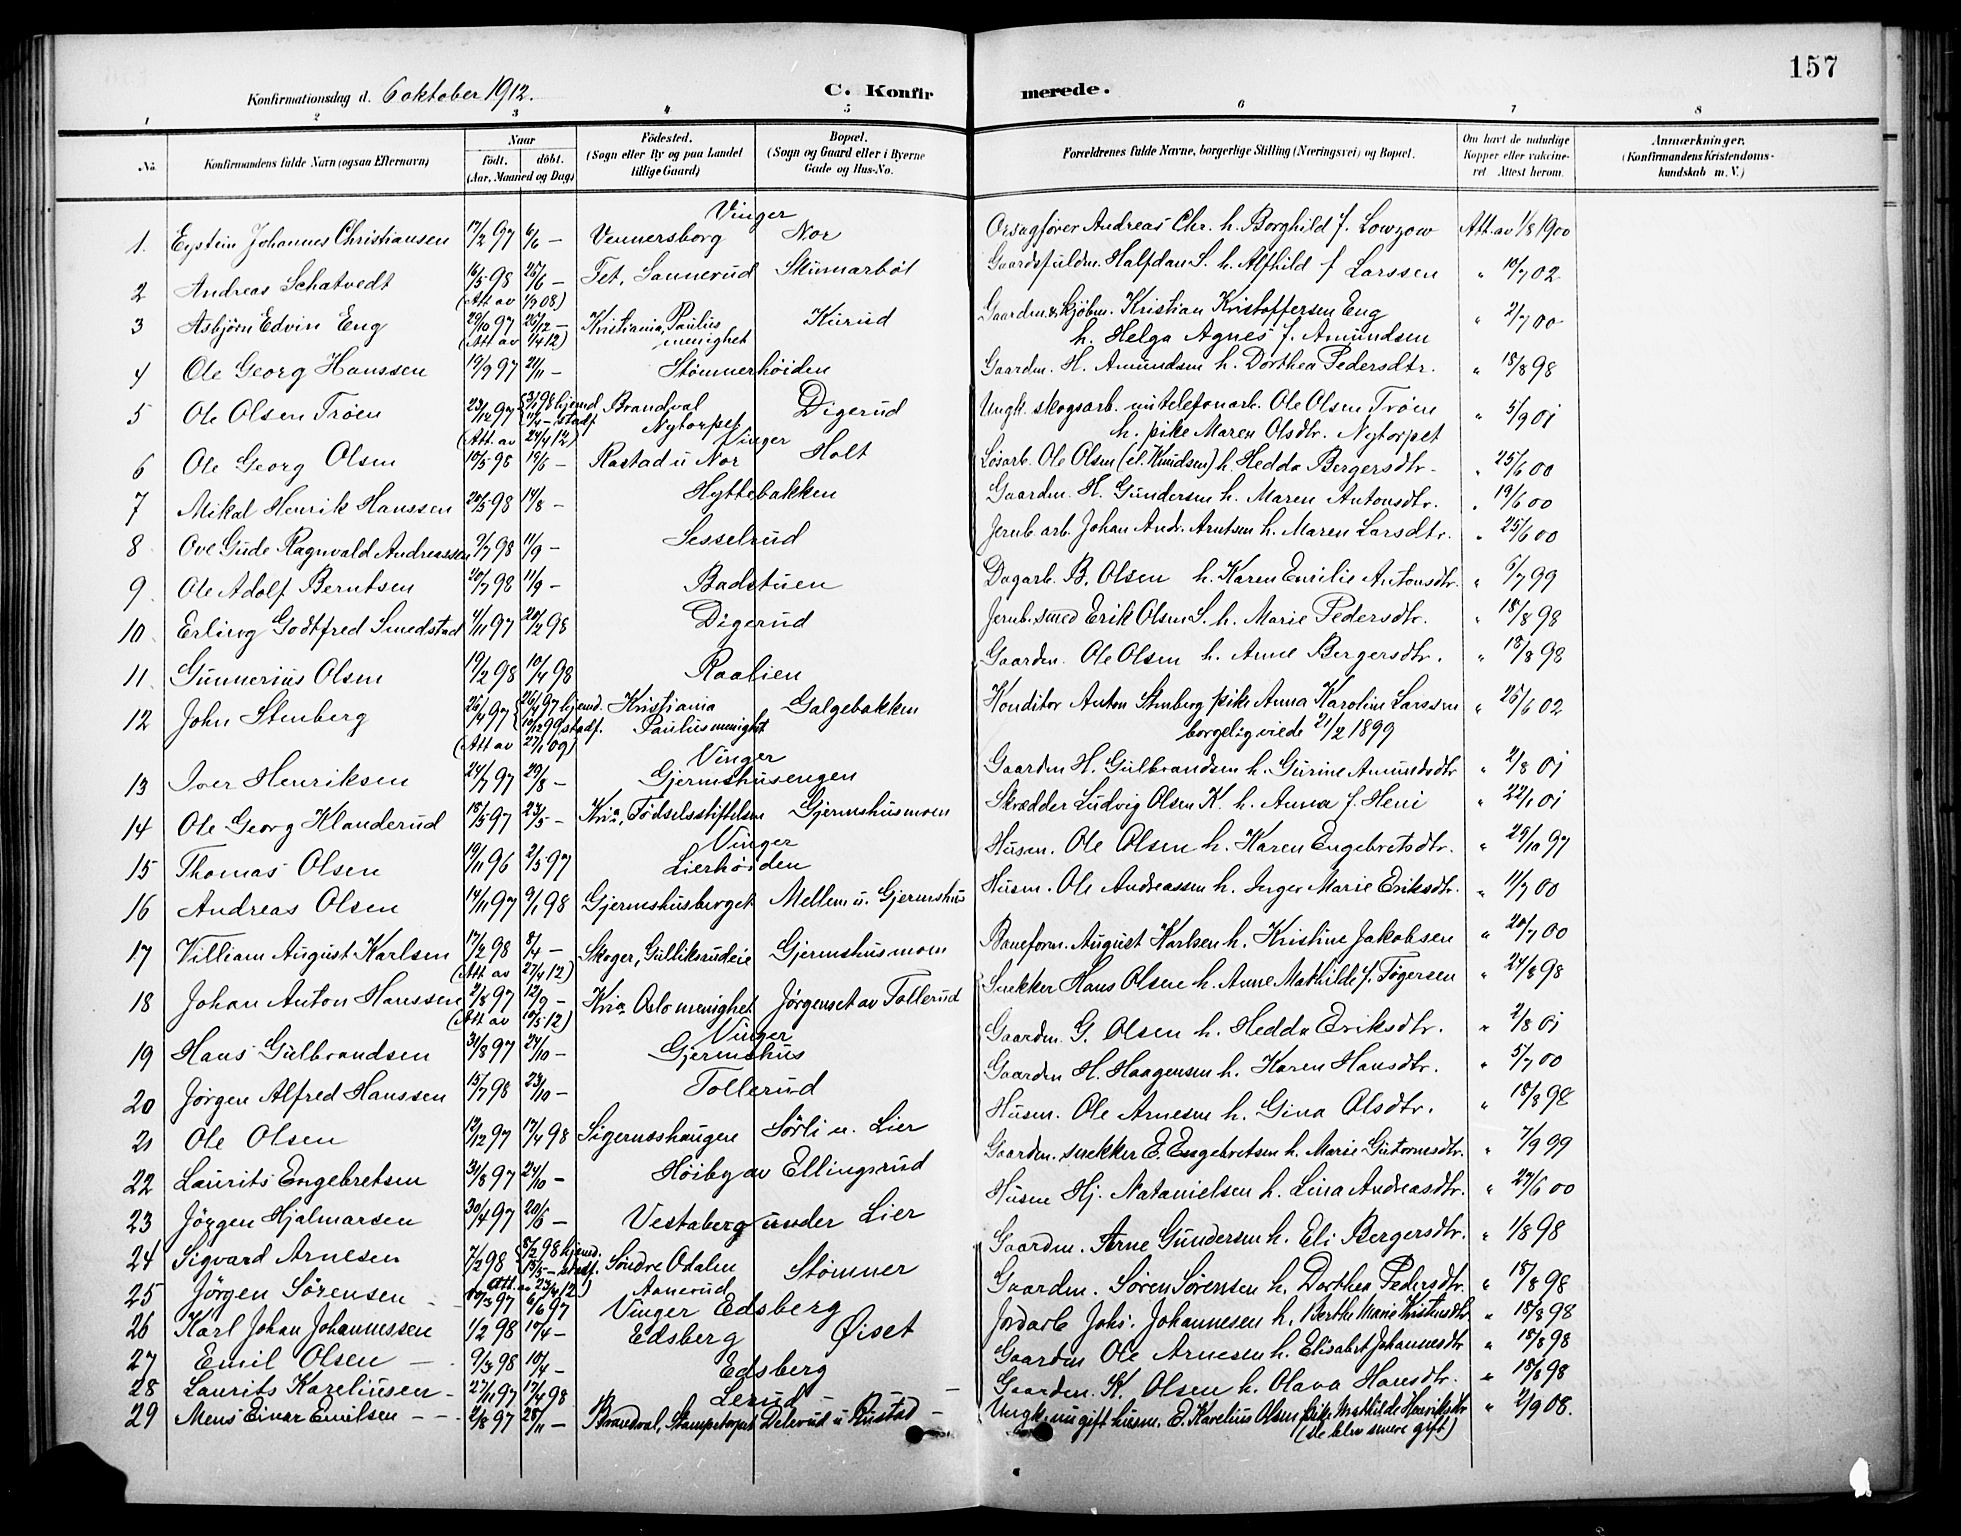 157
Konfirmationsdag d. 6 oktober 1912. C. Konfirmerede.
1 2 3 4 5 6 7 8
No. Konfirmandens fulde Navn (ogsaa Efternavn) Naar født. døbt. (Aar, Maaned og Dag) Fødested. (Sogn eller By og paa Landet tillige Gaard) Bopæl. (Sogn og Gaard eller i Byerne Gade og Hus-No. Forældrenes fulde Navne, borgerlige Stilling (Næringsvei) og Bopæl. Om havt de naturlige Kopper eller vakcineret Attest herom. Anmærkninger. (Konfirmandens Kristendomskundskab m. V.)
Vinger
1. Eystein Johannes Christiansen 17/2 97 6/6 – Vennersborg Nor Orsagfører Andreas Chr. h. Borghild f. Lowzow Att. av 1/8 1900
2 Andreas Schatvedt 16/5 98 25/6 – Fet, Sannerud Skinnarbøl Gaardsfuldm. Halfdan S. h. Alfhild f Larssen " 10/7 02
(Att av 1/9 08)
3 Asbjørn Edvin Eng 29/10 97 26/12 – Kristiania, Paulus Kurud Gaardm. & kjøbm. Kristian Kristoffersen Eng " 2/7 00
(Att av 1/4 12) menighet h. Helga Agnes f. Amundsen
4 Ole Georg Hanssen 19/9 97 21/11 – Stømnerhöiden Gaardm. H. Amundsen h. Dorthea Pedersdtr. " 18/8 98
5 Ole Olsen Trøen 23/12 97 3/1 98 hjemd. 11/4 – stadf. Brandval Digerud Ungk. skogsarb. nu telefonarb. Ole Olsen Trøen " 5/9 01
(Att. av 24/4 12) Nytorpet h. pike Maren Olsdtr. Nytorpet
Vinger
6 Ole Georg Olsen 10/5 98 19/6 – Rastad u Nor Holt Løsarb. Ole Olsen (el. Knudsen) h. Hedda Bergersdtr. " 25/6 00
7 Mikal Henrik Hanssen 20/5 98 14/8 – Hyttebakken Gaardm. H. Gundersen h. Maren Antonsdtr. " 19/6 00
8 Ove Gude Ragnvald Andreassen 9/7 98 11/9 – Sesselrud Jernb. arb. Johan Andr. Arntsen h. Maren Larsdtr. " 25/6 00
9 Ole Adolf Berntsen 20/7 98 11/9 – Badstuen Dagarb. B. Olsen h. Karen Emilie Antonsdtr. " 6/7 99
10 Erling Godtfred Smedstad 4/11 97 20/2 98 Digerud Jernb. smed Erik Olsen S. h. Marie Pedersdtr. " 18/8 98
11 Gunnerius Olsen 19/2 98 10/4 98 Raalien Gaardm. Ole Olsen h. Anne Bergersdtr. " 18/8 98
12 John Stenberg 25/4 97 26/4 97 hjemd. 10/12 99 stadf. Kristiania Galgebakken Konditor Anton Stenberg pike Anna Karoline Larssen " 25/6 02
(Att av 27/1 09) Paulus menighet borgelig viede 21/2 1899
Vinger
13 Iver Henriksen 24/7 97 29/8 – Gjermshusengen Gaardm H. Gulbrandsen h. Gurine Amundsdtr " 2/8 01
14 Ole Georg Klanderud 18/5 97 23/5 – Kr.ia, Fødselsstiftelsen Gjermshusmoen Skrædder Ludvig Olsen K. h. Anna f. Heni " 22/1 01
Vinger
15 Thomas Olsen 19/11 96 2/5 97 Lierhöiden Husm. Ole Olsen h. Karen Engebretsdtr. " 29/10 97
16 Andreas Olsen 14/11 97 9/1 98 Gjermshusberget Mellem u. Gjermshus Husm. Ole Andreassen h. Inger Marie Eriksdtr. " 11/7 00
17 Villiam August Karlsen 17/2 98 8/4 – Skoger, Gulliksrudeie Gjermshusmoen Baneform. August Karlsen h. Kristine Jakobsen " 20/7 00
(Att av 27/4 12)
18 Johan Anton Hanssen 2/8 97 12/9 – Kr.ia Oslo menighet Jörgenset av Tollerud Snekker Hans Olsen h. Anne Mathilde f. Tögersen " 24/8 98
(Att av 19/5 12)
Vinger
19 Hans Gulbrandsen 31/8 97 24/10 – Gjermshus Gaardm. G. Olsen h. Hedda Eriksdtr. " 2/8 01
20 Jørgen Alfred Hanssen 15/7 98 23/10 – Tollerud Gaardm H. Haagensen h. Karen Hansdtr. " 5/7 00
21 Ole Olsen 12/12 97 17/4 98 Sigernæshaugen Sörli u. Lier Husm. Ole Arnesen h. Gina Olsdtr. " 18/8 98
22 Laurits Engebretsen 31/8 97 24/10 – Höiby av Ellingsrud Gaardm. snekker E. Engebretsen h. Marie Guttormsdtr. " 7/9 99
23 Jörgen Hjalmarsen 30/4 97 20/6 – Vestaberg under Lier Husm Hj. Natanielsen h. Lina Andreasdtr. " 23/6 00
24 Sigvard Arnesen 7/2 98 8/2 98 hjemd. 15/5 – stadf. Söndre Odalen Stømner Gaardm. Arne Gundersen h. Eli Bergersdtr. " 1/8 98
Att. av 23/4 12) Aanerud
25 Jörgen Sörensen 6/6 97 Vinger Edsberg Gaardm. Sören Sörensen h. Dorthea Pedersdtr. " 18/8 98
26 Karl Johan Johannessen 1/2 98 10/4 – Edsberg Øiset Jordarb Johs. Johannesen h. Berthe Marie Kristensdtr " 18/8 98
27 Emil Olsen 9/3 98 10/4 – Edsberg Gaardm Ole Arnesen h. Elisabet Johannesdtr " 18/8 98
28 Laurits Kareliusen 27/11 97 17/4 98 Lerud Gaardm. K. Olsen h. Olava Hansdtr. " 18/8 98
29 Mens Einar Emilsen 2/8 97 28/11 – Brandval, Stampetorpet Delerud u Rustad Ungk. nu gift husm. E. Karelius Olsen pike Mathilde Henriksdtr " 2/9 08.
(De blev senere gift)